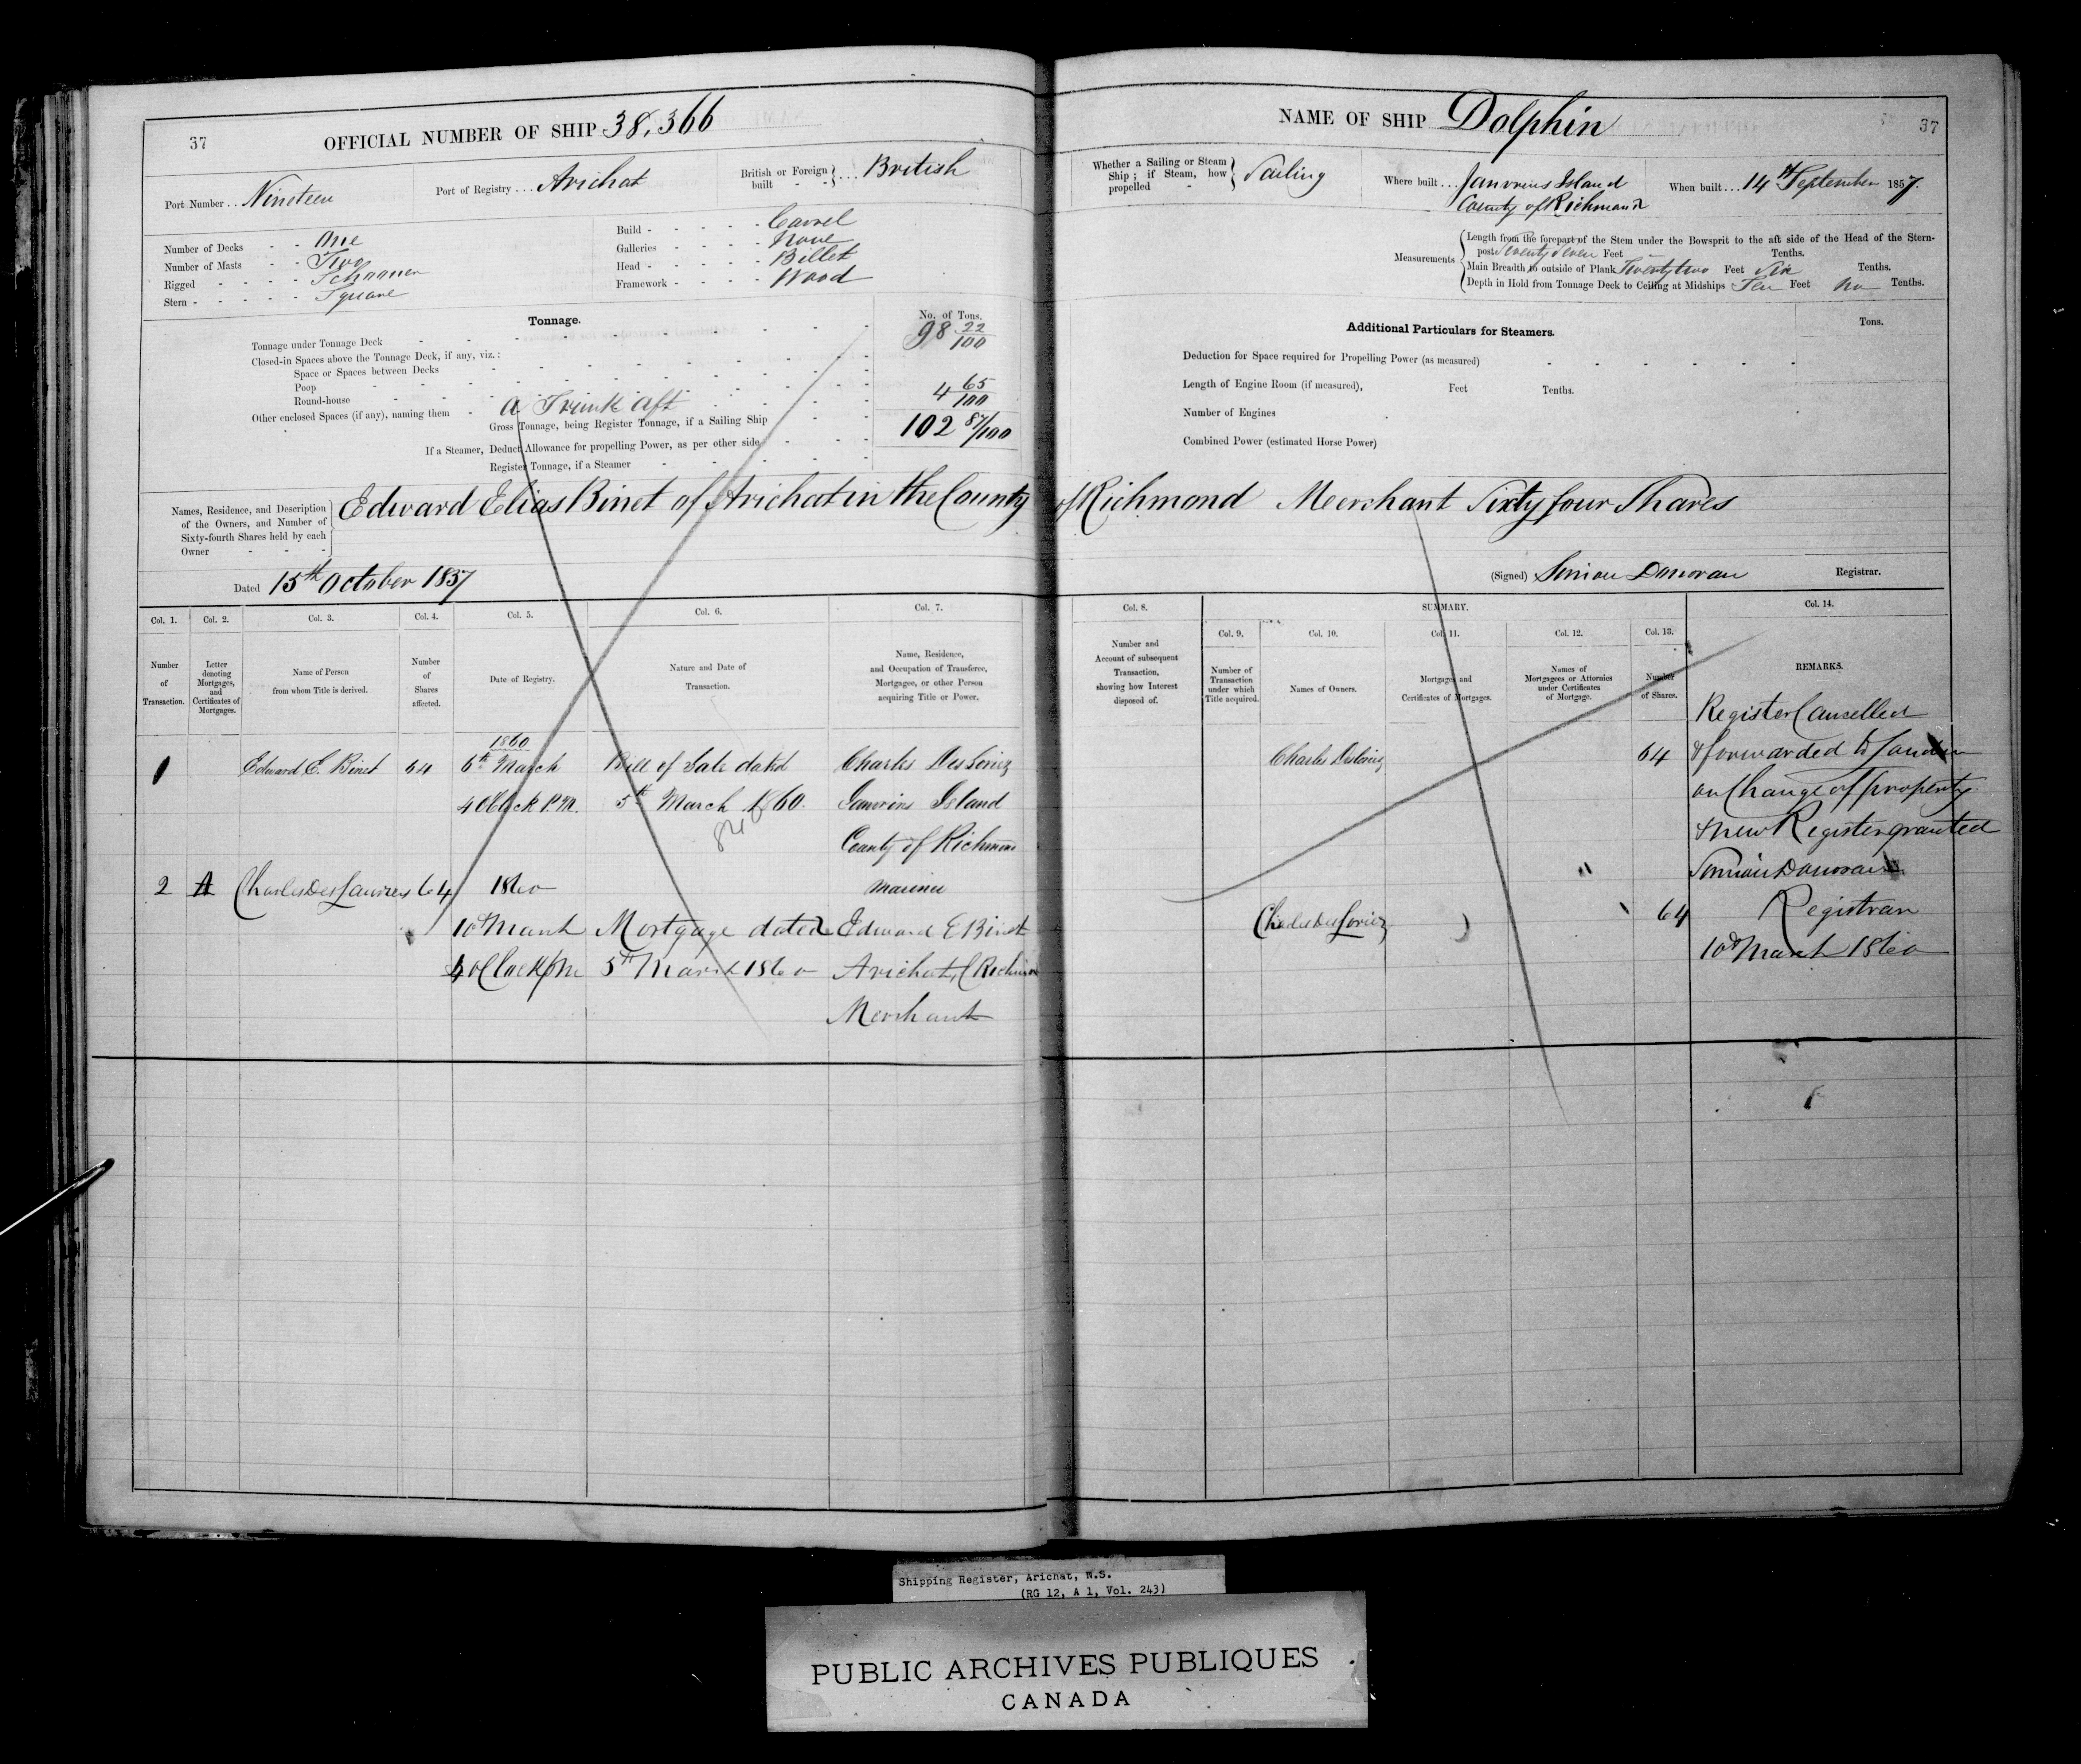 37
OFFICIAL NUMBER OF SHIP 38,366
Port Number . . Nineteen
Port of Registry . . . Arichat
British or Foreign built - - } . . . British
Number of Decks - - One
Number of Masts - - Two
Rigged - - - - Schooner
Stern - - - - - Square
Build - - - - - Carvel
Galleries - - - - None
Head - - - - - Billet
Framework - - - - Wood
Tonnage.
No. of Tons.
Tonnage under Tonnage Deck 98 22/100
Closed-in Spaces above the Tonnage Deck, if any, viz. :
Space or Spaces between Decks
Poop
Round-house
Other enclosed Spaces (if any), naming them - A Trunk aft 4 65/100
Gross Tonnage, being Register Tonnage, if a Sailing Ship 102 87/100
If a Steamer, Deduct Allowance for propelling Power, as per other side
Register Tonnage, if a Steamer
NAME OF SHIP Dolphin
37
Whether a Sailing or Steam Ship ; if Steam, how propelled - } Sailing
Where built . . . Janvrins Island
County of Richmond
When built . . . 14th September 1857.
Measurements
Length from the forepart of the Stem under the Bowsprit to the aft side of the Head of the Stern-
post Seven Feet Tenths.
Main Breadth to outside of Plank Twenty two Feet Six Tenths.
Depth in Hold from Tonnage Deck to Ceiling at Midships Ten Feet no Tenths.
Additional Particulars for Steamers.
Tons.
Deduction for Space required for Propelling Power (as measured)
Length of Engine Room (if measured), Feet Tenths.
Number of Engines
Combined Power (estimated Horse Power)
Names, Residence, and Description
of the Owners, and Number of
Sixty-fourth Shares held by each
Owner - - -
Edward Elias Binet of Arichat in the County of Richmond Merchant Sixty four Shares
Dated 15th October 1857
(Signed) Simon Donovan Registrar.
Col. 1.
Number
of
Transaction.
Col. 2.
Letter
denoting
Mortgages,
and
Certificates of
Mortgages.
Col. 3.
Name of Person
from whom Title is derived.
Col. 4.
Number
of
Shares
affected.
Col. 5.
Date of Registry.
Col. 6.
Nature and Date of
Transaction.
Col. 7.
Name, Residence,
and Occupation of Transferee,
Mortgagee, or other Person
acquiring Title or Power.
Col. 8.
Number and
Account of subsequent
Transaction,
showing how Interest
disposed of.
SUMMARY.
Col. 9.
Number of
Transaction
under which
Title acquired.
Col. 10.
Names of Owners.
Col. 11.
Mortgages and
Certificates of Mortgages.
Col. 12.
Names of
Mortgagees or Attornies
under Certificates
of Mortgage.
Col. 13.
Number
of Shares.
Col. 14.
REMARKS.
1
Edward E. Binet
64
1860
6th March
4 OClock P.M.
Bill of Sale dated
5th March 1860.
Charles DesLoriez
Janvrins Island
County of Richmond
Mariner
Charles DesLoriez
64
2
A
64
1860
10th March
4 OClock PM
Mortgage dated
5th March 1860
Edward E Binet
Arichat, C Richmond
Merchant
Charles DesLoriez
"
64
Register Cancelled
& forwarded to London
on Change of property
& new Register granted
Simon Donovan
Registrar
10th March 1860
Shipping Register, Arichat, N.S.
(RG 12, A 1, Vol. 243)
PUBLIC ARCHIVES PUBLIQUES
CANADA